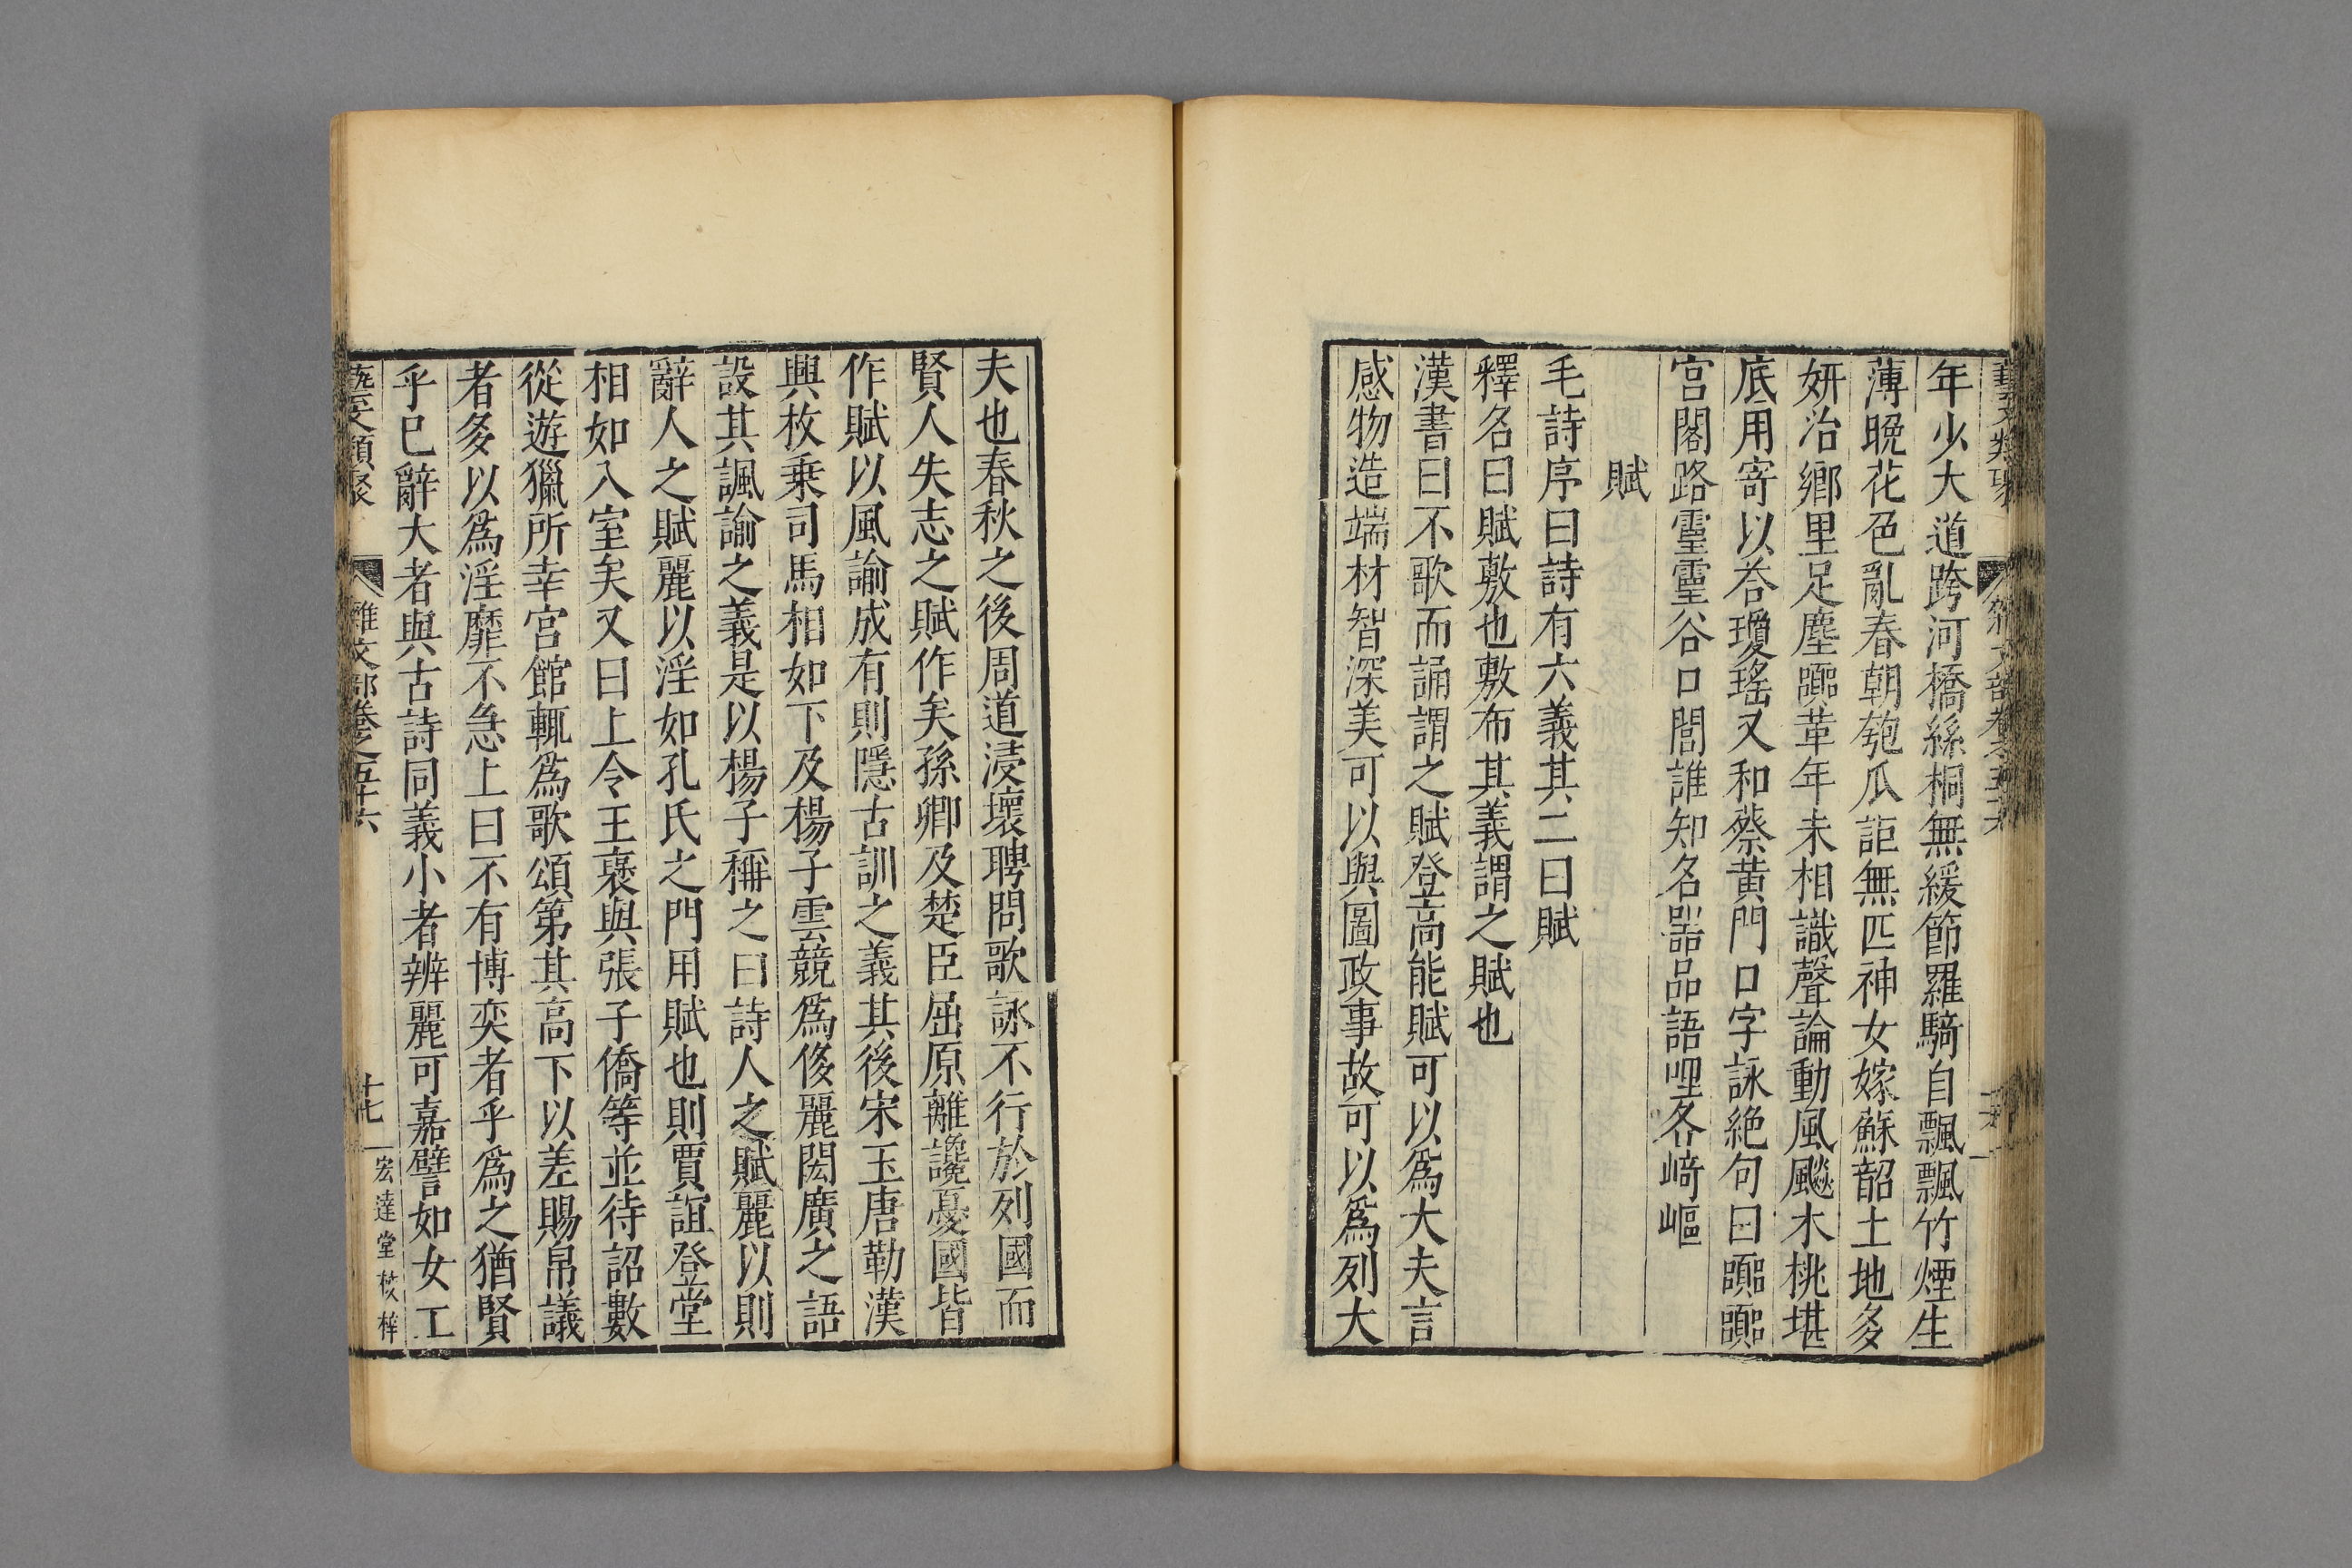 年少大道跨河橋絲桐無緩節羅騎自飄飄竹煙生
薄晚花色亂春朝匏瓜詎無匹神女嫁蘇韶土地多
妍冶鄉里足塵囂革年未相識聲論動風飈木桃堪
底用寄以荅瓊瑤又和蔡黃門口字詠絕句曰囂囂
宮閣路靈靈谷口閭誰知名器品語哩各崎嶇
賦
毛詩序曰詩有六義其二曰賦
釋名曰賦敷也敷布其義謂之賦也
漢書曰不歌而誦謂之賦登高能賦可以爲大夫言
感物造端材智深美可以與圖政事故可以爲列大
夫也春秋之後周道浸壞聘問歌詠不行於列國而
賢人失志之賦作矣孫卿及楚臣屈原離讒憂國皆
作賦以風諭成有則隱古訓之義其後宋玉唐勒漢
興枚乗司馬相如下及楊子雲競爲侈麗閎廣之語
設其諷諭之義是以楊子稱之曰詩人之賦麗以則
辭人之賦麗以淫如孔氏之門用賦也則賈誼登堂
相如入室矣又曰上令王襃與張子僑等並待詔數
從遊獵所幸宮館輒爲歌頌第其高下以差賜帛議
者多以爲淫靡不急上曰不有博奕者乎爲之猶賢
乎已辭大者與古詩同義小者辨麗可嘉譬如女工
藝文類聚 雜文部卷之五十六 十七 宏達堂校梓